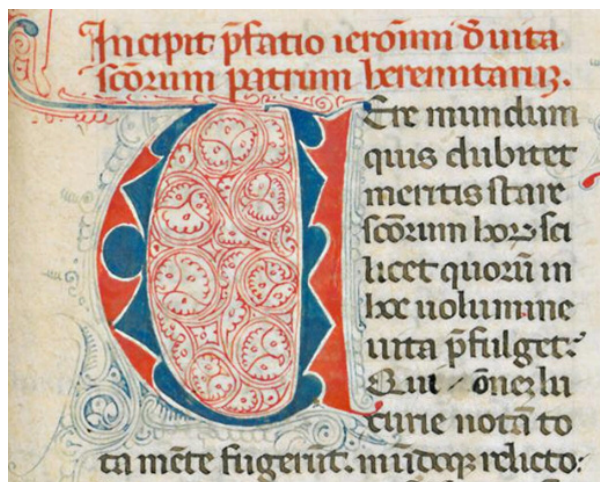 Incipit p̄fatio ieronimi d̄ uita
scōrum patrum heremitarūꝫ.
Uere mundum
quis dubitet
meritis stare
scōrum hoꝝ sci
licet quorū in
hoc uolumine
uita p̄fulget:
Qui om̄eꝫ lu
curie notā to
ta mēte fugerūt. mūdoqꝫ relicto: